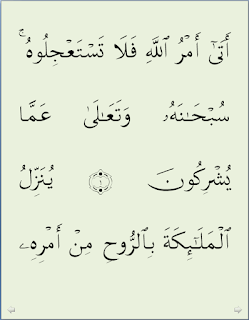 أَتَىٰٓ أَمْرُ ٱللَّهِ فَلَا تَسْتَعْجِلُوهُ ۚ
سُبْحَـٰنَهُۥ وَتَعَـٰلَىٰ عَمَّا
يُشْرِكُونَ ١ يُنَزِّلُ
ٱلْمَلَـٰٓئِكَةَ بِٱلرُّوحِ مِنْ أَمْرِهِۦ